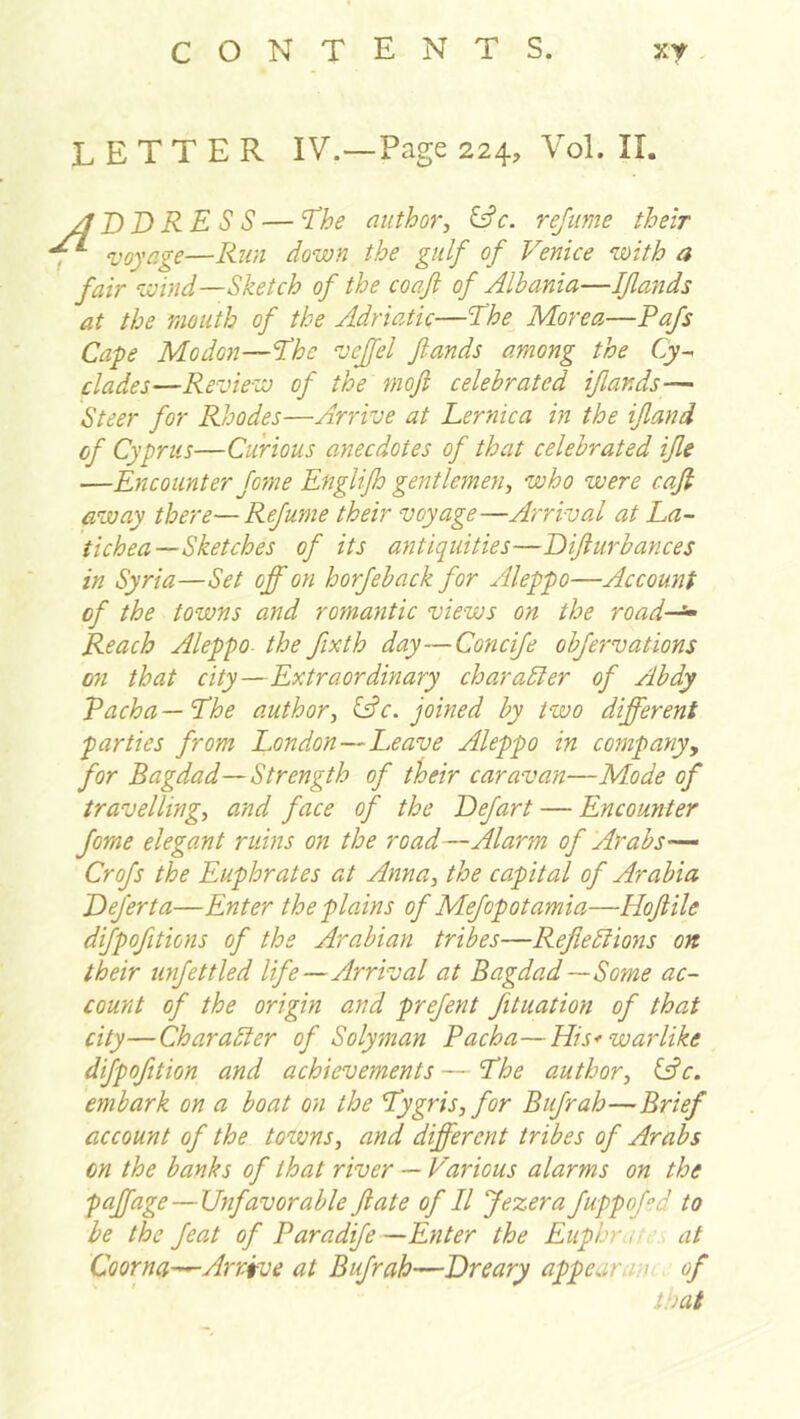 CONTENTS. xv
LETTER IV.—Page 224, Vol. II.
ADDRESS—The author, &c. reſume their
voyage—Run down the gulf of Venice with a
fair wind—Sketch of the coaſt of Albania—Iſlands
at the mouth of the Adriatic—The Morea—Paſs
Cape Modon—The veſſel ſtands among the Cy-
clades—Review of the moſt celebrated iſlands—
Steer for Rhodes—Arrive at Lernica in the iſland
of Cyprus—Curious anecdotes of that celebrated iſle
—Encounter ſome Engliſh gentlemen, who were caſt
away there—Reſume their voyage—Arrival at La-
tichea—Sketches of its antiquities—Diſturbances
in Syria—Set off on horſeback for Aleppo—Account
of the towns and romantic views on the road—
Reach Aleppo the ſixth day—Conciſe obſervations
on that city—Extraordinary character of Abdy
Pacha—The author, &c. joined by two different
parties from London—Leave Aleppo in company,
for Bagdad—Strength of their caravan—Mode of
travelling, and face of the Deſart—Encounter
ſome elegant ruins on the road—Alarm of Arabs—
Croſs the Euphrates at Anna, the capital of Arabia
Deſerta—Enter the plains of Meſopotamia—Hoſtile
diſpoſitions of the Arabian tribes—Reflections on
their unſettled life—Arrival at Bagdad—Some ac-
count of the origin and preſent ſituation of that
city—Character of Solyman Pacha—His warlike
diſpoſition and achievements—The author, &c.
embark on a boat on the Tygris, for Buſrah—Brief
account of the towns, and different tribes of Arabs
on the banks of that river—Various alarms on the
paſſage—Unfavorable ſtate of Il Jezera ſuppoſed to
be the ſeat of Paradiſe—Enter the Euphrates at
Coorna—Arrive at Buſrah—Dreary appearance of
that